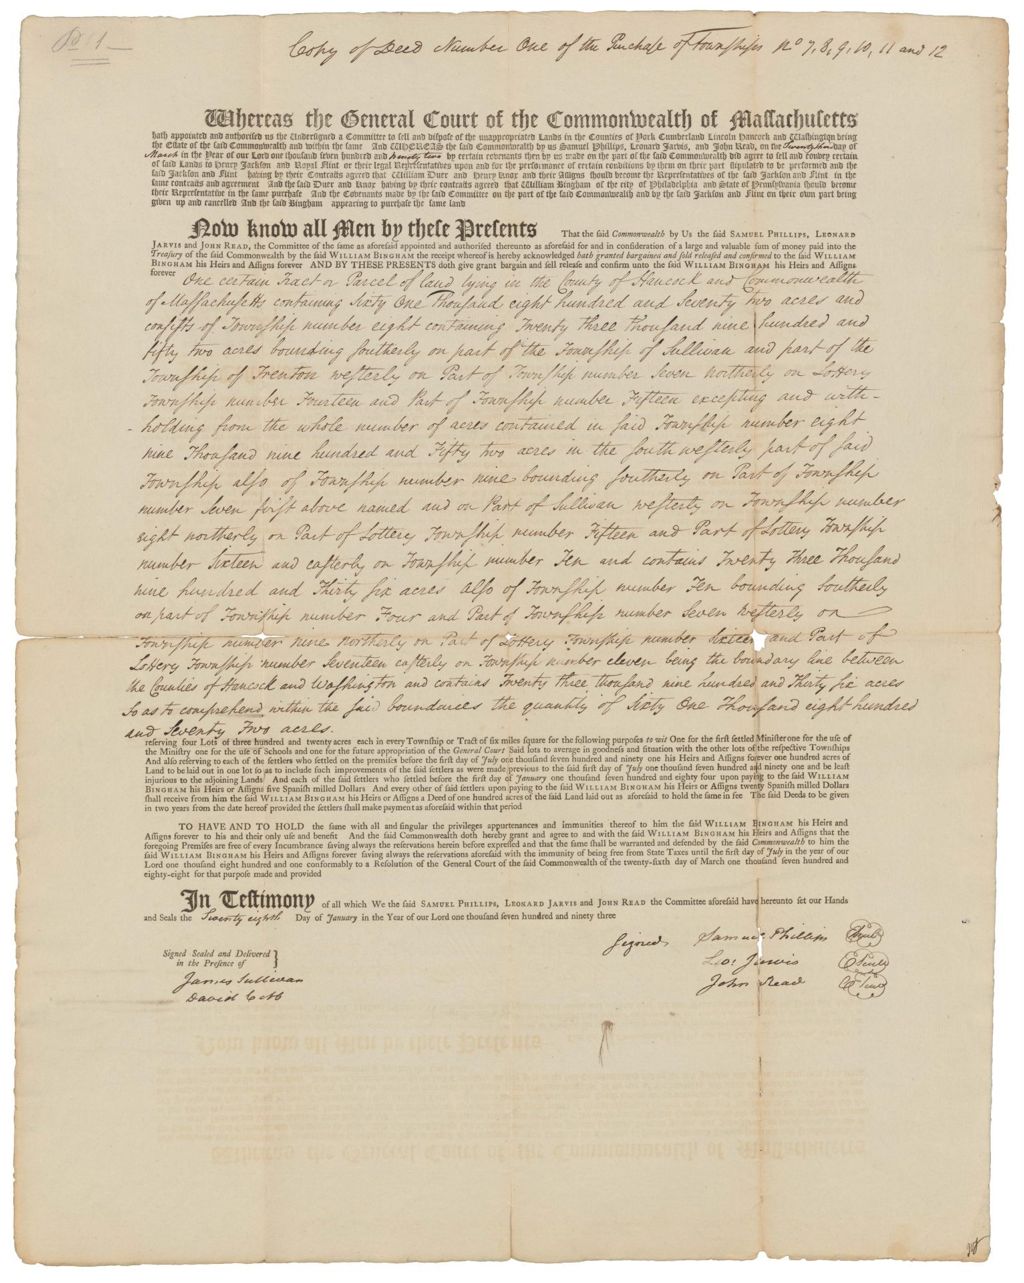 Copy of Deed Number One of the Purchase of Townships No 7, 8, 9, 10, 11 and 12
Whereas the General Court of the Commonwealth of Massachusetts
hath appointed and authorised us the Undersigned a Committee to sell and dispose of the unappropriated Lands in the Counties of York Cumberland Lincoln Hancock and Washington being
the Estate of the said Commonwealth and within the same And WHEREAS the said Commonwealth by us Samuel Phillips, Leonard Jarvis, and John Read, on the day of
March in the Year of our Lord one thousand seven hundred and ninety two by certain covenants then by us made on the part of the said Commonwealth did agree to sell and convey certain
of said Lands to Henry Jackson and Royal Flint or their legal Representatives upon and for the performance of certain conditions by them on their part stipulated to be performed and the
said Jackson and Flint having by their Contracts agreed that William Duer and Henry Knox and their Assigns should become the Representatives of the said Jackson and Flint in the
same contracts and agreement And the said Duer and Knox having by their contracts agreed that William Bingham of the city of Philadelphia and State of Pennsylvania should become
their Representative in the same purchase And the Covenants made by the said Committee on the part of the said Commonwealth and by the said Jackson and Flint on their own part being
given up and cancelled And the said Bingham appearing to purchase the same land
Now know all Men by these Presents That the said Commonwealth by Us the said SAMUEL PHILLIPS, LEONARD
JARVIS and JOHN READ, the Committee of the same as aforesaid appointed and authorised thereunto as aforesaid for and in consideration of a large and valuable sum of money paid into the
Treasury of the said Commonwealth by the said WILLIAM BINGHAM the receipt whereof is hereby acknowledged hath granted bargained and sold released and confirmed to the said WILLIAM
BINGHAM his Heirs and Assigns forever AND BY THESE PRESENTS doth give grant bargain and sell release and confirm unto the said WILLIAM BINGHAM his Heirs and Assigns
forever
One certain Tract or Parcel of land lying in the County of Hancock and Commonwealth
of Massachusetts containing Sixty One Thousand eight hundred and Seventy two acres and
consists of Township number eight containing Twenty three thousand nine hundred and
fifty two acres bounding southerly on part of the Township of Sullivan and part of the
Township of Trenton westerly on Part of Township number Seven northerly on Lottery
Township number Fourteen and Part of Township number Fifteen excepting and with-
-holding from the whole number of acres contained in said Township number eight
nine Thousand nine hundred and Fifty two acres in the south westerly part of said
Township also of Township number nine bounding southerly on Part of Township
number Seven first above named and on Part of Sullivan westerly on Township number
eight northerly on Part of Lottery Township number Fifteen and Part of Lottery Township
number Sixteen and easterly on Township number Ten and contains Twenty Three Thousand
nine hundred and Thirty Six acres also of Township number Ten bounding Southerly
on part of Township number Four and Part of Township number Seven westerly on
Township number nine northerly on Part of Lottery Township number Sixteen and Part of
Lottery Township number Seventeen easterly on Township number eleven being the boundary line between
the Counties of Hancock and Washington and contains Twenty three thousand nine hundred and Thirty Six acres
So as to comprehend within the said boundaries the quantity of Sixty One Thousand eight hundred
and Seventy Two acres.
reserving four Lots of three hundred and twenty acres each in every Township or Tract of six miles square for the following purposes to wit One for the first settled Minister one for the use of
the Ministry one for the use of Schools and one for the future appropriation of the General Court Said lots to average in goodness and situation with the other lots of the respective Townships
And also reserving to each of the settlers who settled on the premises before the first day of July one thousand seven hundred and ninety one his Heirs and Assigns forever one hundred acres of
Land to be laid out in one lot so as to include such improvements of the said settlers as were made previous to the said first day of July one thousand seven hundred and ninety one and be least
injurious to the adjoining Lands And each of the said settlers who settled before the first day of January one thousand seven hundred and eighty four upon paying to the said WILLIAM
BINGHAM his Heirs or Assigns five Spanish milled Dollars And every other of said settlers upon paying to the said WILLIAM BINGHAM his Heirs or Assigns twenty Spanish milled Dollars
shall receive from him the said WILLIAM BINGHAM his Heirs or Assigns a Deed of one hundred acres of the said Land laid out as aforesaid to hold the same in fee The said Deeds to be given
in two years from the date hereof provided the settlers shall make payment as aforesaid within that period
TO HAVE AND TO HOLD the same with all and singular the privileges appurtenances and immunities thereof to him the said WILLIAM BINGHAM his Heirs and
Assigns forever to his and their only use and benefit And the said Commonwealth doth hereby grant and agree to and with the said WILLIAM BINGHAM his Heirs and Assigns that the
foregoing Premises are free of every Incumbrance saving always the reservations herein before expressed and that the same shall be warranted and defended by the said Commonwealth to him the
said WILLIAM BINGHAM his Heirs and Assigns forever saving always the reservations aforesaid with the immunity of being free from State Taxes until the first day of July in the year of our
Lord one thousand eight hundred and one conformably to a Resolution of the General Court of the said Commonwealth of the twenty-sixth day of March one thousand seven hundred and
eighty-eight for that purpose made and provided
In Testimony of all which We the said SAMUEL PHILLIPS, LEONARD JARVIS and JOHN READ the Committee aforesaid have hereunto set our Hands
and Seals the Twenty eighth Day of January in the Year of our Lord one thousand seven hundred and ninety three
Signed Samuel Phillips Seal
Signed Sealed and Delivered
in the Presence of
Leo: Jarvis Seal
James Sullivan
John Read Seal
David Cobb